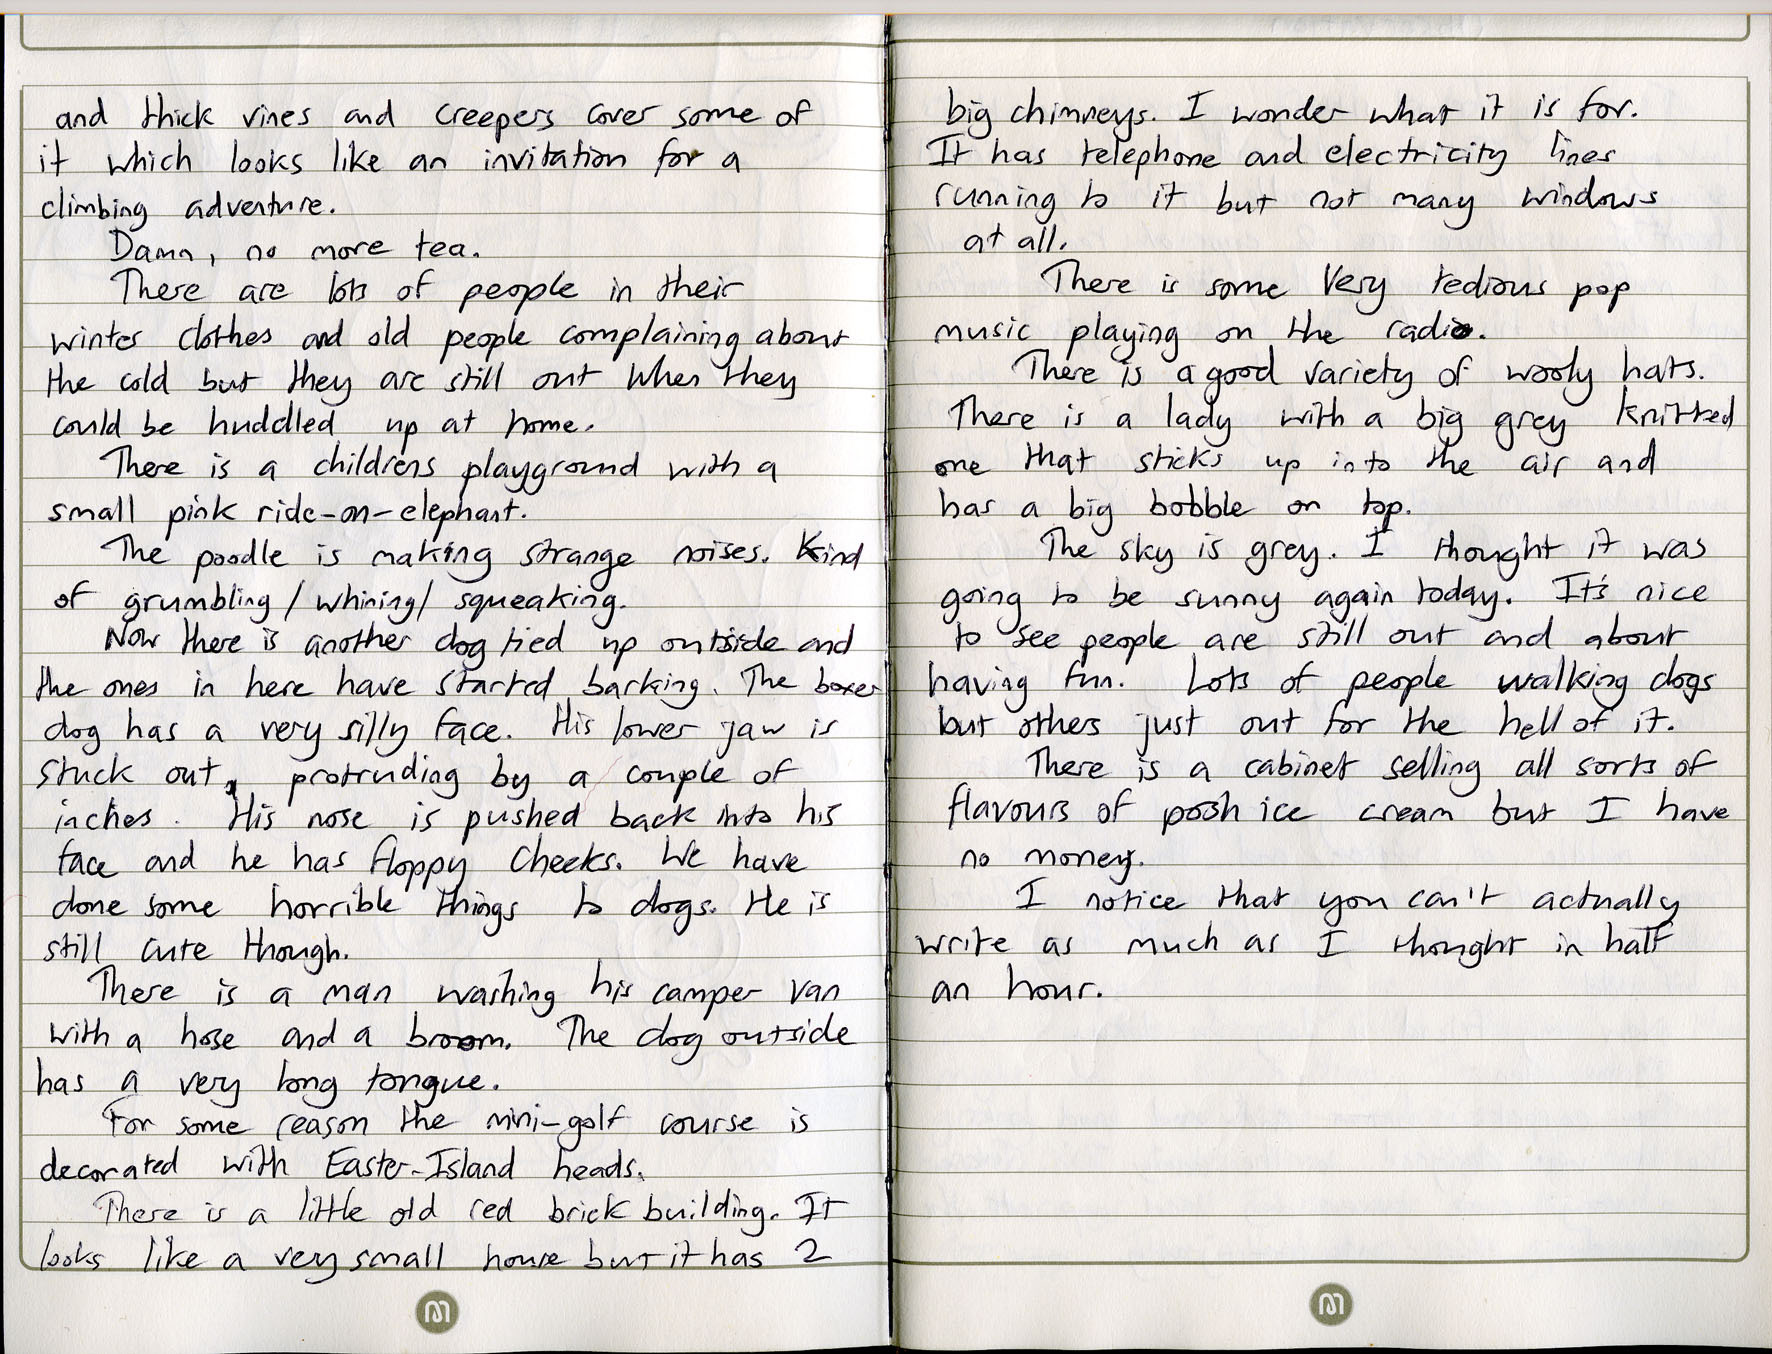 and thick vines and creepers cover some of
it which looks like an invitation for a
climbing adventure.
Damn, no more tea.
There are lots of people in their
winter clothes and old people complaining about
the cold but they are still out when they
could be huddled up at home.
There is a childrens playground with a
small pink ride-on-elephant.
The poodle is making strange noises. Kind
of grumbling/whining/squeaking.
Now there is another dog tied up outside and
the ones in here have started barking. The boxer
dog has a very silly face. His lower jaw is
stuck out, protruding by a couple of
inches. His nose is pushed back into his
face and he has floppy cheeks. We have
done some horrible things to dogs. He is
still cute though.
There is a man washing his camper van
with a hose and a broom. The dog outside
has a very long tongue.
For some reason the mini-golf course is
decorated with Easter-Island heads.
There is a little old red brick building. It
looks like a very small house but it has 2
big chimneys. I wonder what it is for.
It has telephone and electricity lines
running to it but not many windows
at all.
There is some very tedious pop
music playing on the radio.
There is a good variety of wooly hats.
There is a lady with a big grey knitted
one that sticks up into the air and
has a big bobble on top.
The sky is grey. I thought it was
going to be sunny again today. It's nice
to see people are still out and about
having fun. Lots of people walking dogs
but others just out for the hell of it.
There is a cabinet selling all sorts of
flavours of posh ice cream but I have
no money.
I notice that you can't actually
write as much as I thought in half
an hour.